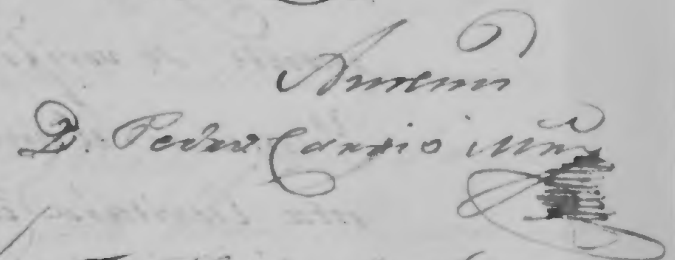 Antemi
D. Pedro Carpio